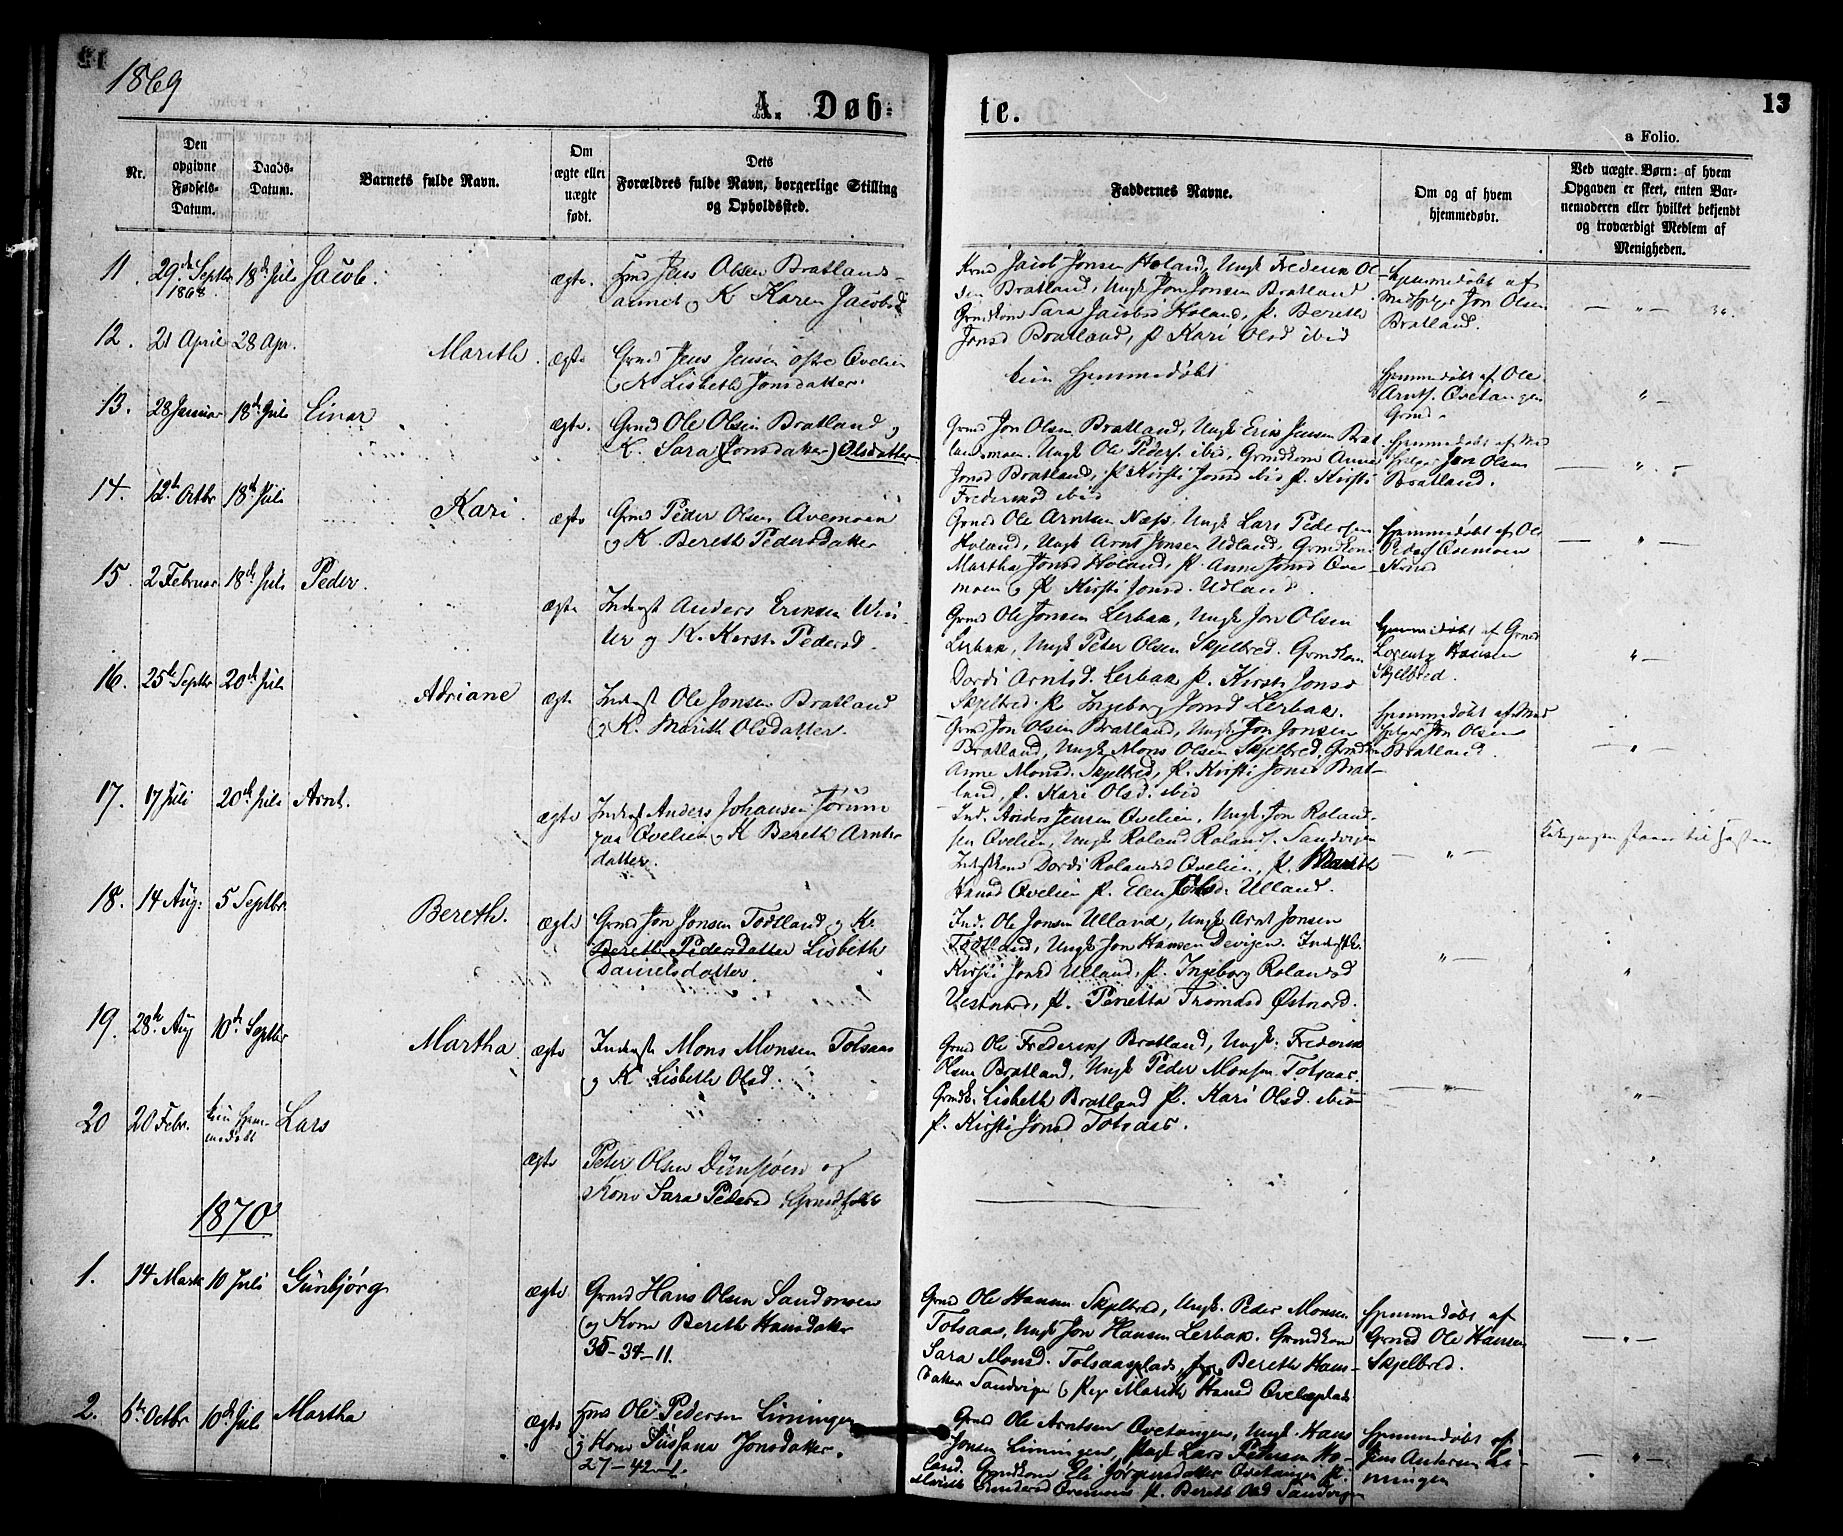 1869
A. Døb-
te.
13
a Folio.
Nr.
Den opgivne Fødsels-Datum.
Daabs-Datum.
Barnets fulde Navn.
Om ægte eller uægte født.
Dets Forældres fulde Navn, borgerlige Stilling og Opholdssted.
Faddernes Navne.
Om og af hvem hjemmedøbt.
Ved uægte Børn: af hvem Opgaven er skeet, enten Barnemoderen eller hvilket bekjendt og troværdigt Medlem af Menigheden.
11. 29de Septbr 1868. 18de Juli Jacob. ægte. Jens Olsen Bratlands-
K Karen Jacobsd
Jacob Jonsen Holand, Ungk Frederik Ol-
sen Bratland, Ungk Jon Jonsen Bratland
Grmdkone Sara Jacobsd Holand, P. Bereth
Jonsd Bratland, P Kari Olsd ibid
Hjemmedøbt af
Jon Olsen
Bratland.
12. 21 April 28 Apr. Marith. ægte Grmd Jens Jensen Østre Qvelien
K Lisbeth Jonsdatter.
kun hjemmedøbt
Hjemmedøbt af Ole
Arnts. Qvetangen
Grmd.
13. 28 Januar 18de Juli Einar ægte. Grmd Ole Olsen Bratland og
K. Sara (Jonsdatter) Olsdatter
Grmd Jon Olsen Bratland, Ungk Erik Jensen Brat-
landsmoen. Ungk Ole Peders. ibid, Grmdkone Anne
Jonsd Bratland, P Kirsti Jonsd ibid P. Kirsti
Frederiksd ibid
Hjemmedøbt af Med
hjelper Jon Olsen
Bratland.
14. 12te Octbr 18de Juli Kari. ægte Grmd Peder Olsen Qvemoen
og K. Bereth Pedersdatter
Grmd Ole Arntsen Næss. Ungk Lars Pedersen
Holand, Ungk Arnt Jonsen Udland, Grmdkone
Martha Jonsd Holand, P. Anne Jonsd Qve-
moen og P. Kirsti Jonsd. Udland.
Hjemmedøbt af Ole
Peders Qvemoen
15. 2 Februar 18de Juli Peder. ægte Inderst Anders Eriksen Win-
ter og K. Kirsti Pedersd.
Grmd Ole Jonsen Lerbak, Ungk Jon Olsen
Lerbak, Ungk Peter Olsen Skjelbred. Grmdkone
Dordi Arntsd. Lerbak P. Kirsti Jonsd
Skjelbred. P Ingeborg Jonsd Lerbak.
Hjemmedøbt af Grmd
Lorents Hansen
Skjelbred.
16. 25te Septbr 20de Juli Adriane ægte Inderst Ole Jonsen Bratland
og K. Marith Olsdatter.
Grmd Jon Olsen Bratland, Ungk Jon Jonsen
Bratland, Ungk Mons Olsen Skjelbred, Grmdkone
Anne Monsd. Skjelbred, P. Kirsti Jonsd Brat-
land, P. Kari Olsd. ibid
Hjemmedøbt af Med
hjelper Jon Olsen
Bratland.
17. 17 Juli 20de Juli Arnt. ægte Inderst Anders Johansen Jørum
paa Qvelien og K Bereth Arnts-
datter.
Ind. Anders Jensen Qvelien, Ungk Jon Roland-
sen Qvelien, Ungk Roland Rolands. Sandvigen
Inderstkone Dordi Rolandsd Qvelien, P. Marith
Hansd Qvelien P. Elen Jonsd. Ulland.
18. 14 Aug: 5 Septbr. Bereth. ægte Grmd Jon Jonsen Tødtland og K.
Bereth Pedersdatter Lisbeth
Danielsdatter.
Ind. Ole Jonsen Ulland, Ungk Arnt Jonsen
Tødtland, Ungk Jon Hansen Devigen. Inderstk.
Kirsti Jonsd Ulland, P. Ingeborg Rolandsd
Vestnord, P. Penetta Tromdsd Østnord.
19. 28de Aug 10de Septbr Martha. ægte Inderste Mons Monsen Totsaas
og K Lisbeth Olsd.
Grmd Ole Frederiks Bratland, Ungk: Frederik
Olsen Bratland, Ungk Peder Monsen Totsaas.
Grmdk. Lisbeth Bratland P. Kari Olsd. ibid
P. Kirsti Jonsd Totsaas.
20 20 Febr. kun hjem-
medøbt Lars ægte Peter Olsen og
Kone Sara Pedersd Grmdfolk
1870
1. 14 Marts 10 Juli Gunbjørg ægte Grmd Hans Olsen Sandmoen
og Kone Bereth Hansdatter
35-34-11.
Grmd Ole Hansen Skjelbred, Ungk. Peder Monsen
Totsaas, Ungk Jon Hansen Lerbak. Grmdkone
Sara Monsd. Totsaasplads, Pige Bereth Hans-
datter Sandvigen og Pige Marith Hansd Qveleplads
Hjemmedøbt af
Grmd Ole Hansen
Skjelbred.
2. 6te Octbr 10de Juli Martha ægte Grmd Ole Pedersen Limingen
og Kone Susana Jonsdatter.
27-42-1.
Grmd Ole Arntsen Qvetangen, Ungk. Hans
Jonsen Limingen, Ungk Lars Petersen Ho-
land. Grmdkone Eli Jørgensdatter Qvetangen P.
Marith Qvemoen P. Bereth Olsd Sandvigen
Hjemmedøbt af
Jens Andersen Li-
mingen